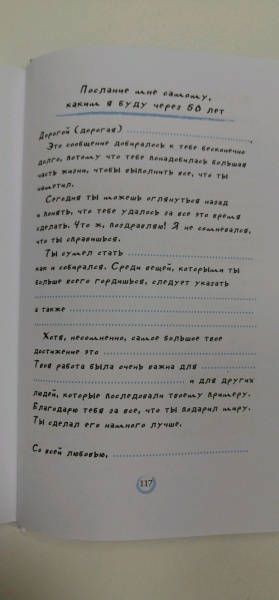 Послание мне самому,
каким я буду через 50 лет
Дорогой (дорогая)
Это сообщение добиралось к тебе бесконечно
долго, потому что тебе понадобилась большая
часть жизни, чтобы выполнить все, что ты
наметил.
Сегодня ты можешь оглянуться назад
и понять, что тебе удалось за все это время
сделать. Что ж, поздравляю! Я не сомневался,
что ты справишься.
Ты сумел стать
как и собирался. Среди вещей, которыми ты
больше всего гордишься, следует указать
а также
Хотя, несомненно, самое большое твое
достижение это
Твоя работа была очень важна для
и для других
людей, которые последовали твоему примеру.
Благодарю тебя за все, что ты подарил миру.
Ты сделал его намного лучше.
Со всей любовью,
117